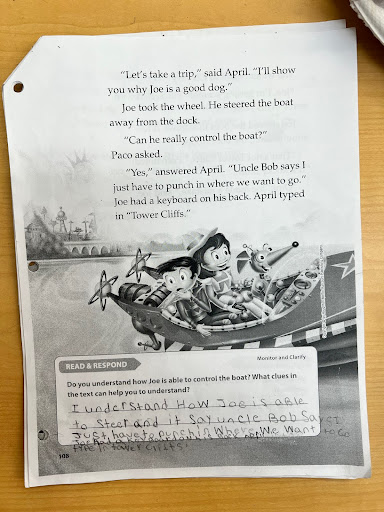 "Let's take a trip," said April. "I'll show
you why Joe is a good dog."
Joe took the wheel. He steered the boat
away from the dock.
"Can he really control the boat?"
Paco asked.
"Yes," answered April. "Uncle Bob says I
just have to punch in where we want to go."
Joe had a keyboard on his back. April typed
in "Tower Cliffs."
READ & RESPOND
Monitor and Clarify
Do you understand how Joe is able to control the boat? What clues in
the text can help you to understand?
I understand How Joe is able
to Steer and it Say uncle Bob Says I
Just have to punch in Where We Want to Go
in tower Cliffs.
108